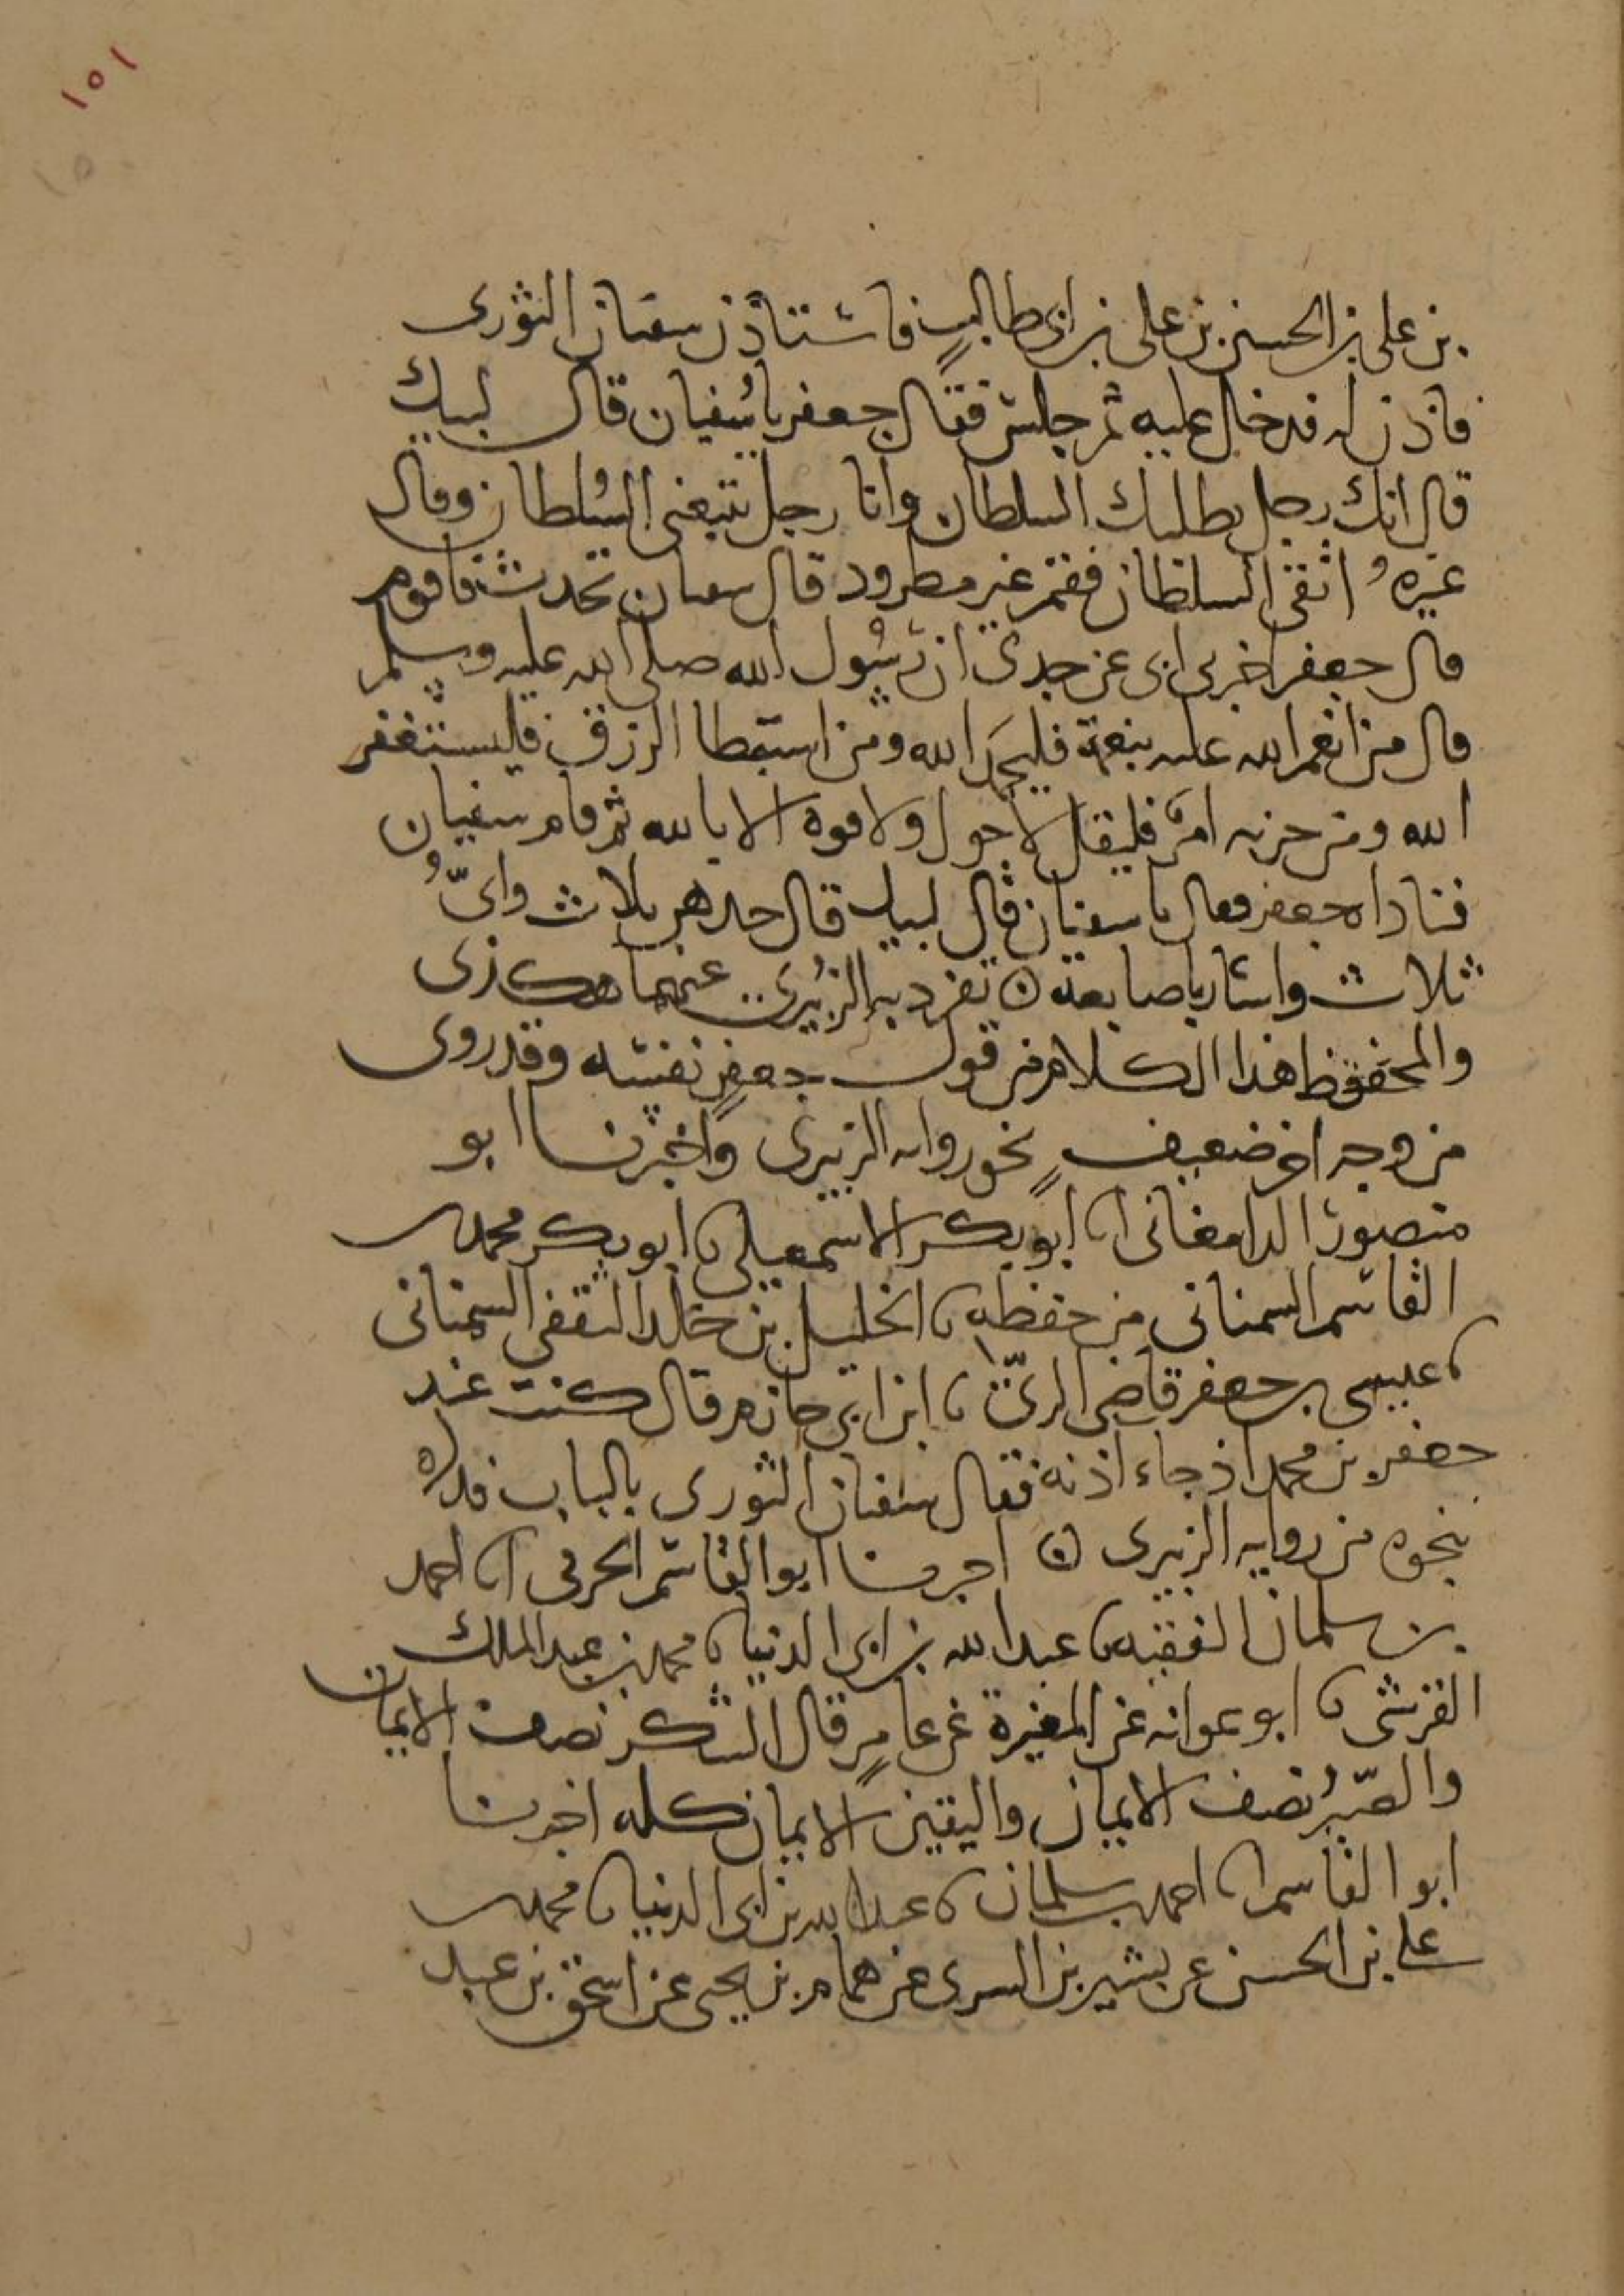 ١٥١
١٥
بن علي بن الحسين بن علي بن ابي طالب فاستاذن سفيان الثوري
فاذن له فدخل عليه ثم جلس فقال جعفر يا سفيان قال لبيك
قال انك رجل يطلبك السلطان وانا رجل نتبغى السلطان وقال
غيره اتقي السلطان فقم غير مطرود قال سفيان تحدث فاقوم
قال جعفر اخبرني ابي عن جدي ان رسول الله صلى الله عليه وسلم
قال من انعم الله عليه بنعمة فليحمد الله ومن استبطا الرزق فليستغفر
الله ومن حزبه امر فليقل لا حول ولا قوة الا بالله ثم قام سفيان
فناداه جعفر فقال يا سفيان قال لبيك قال خذهن ثلاث واي
ثلاث واشار باصابعه ۞ تفرد به الزبيري عنهما هكذي
والمحفوظ هذا الكلام من قول جعفر نفسه وقد روى
من وجه اخر ضعيف نحو رواية الزبيري واخبرنا ابو
منصور الدامغاني انا ابو بكر الاسمعيلي نا ابو بكر محمد بن
القاسم السمناني من حفظه نا الخليل بن خالد الثقفي السمناني
نا عيسى بن جعفر قاضي الري نا ابن ابي حازم قال كنت عند
جعفر بن محمد اذ جاء اذنه فقال سفيان الثوري بالباب فذكره
بنحوه من رواية الزبيري ۞ اخبرنا ابو القاسم الحرفي انا احمد
بن سلمان الفقيه نا عبد الله بن ابي الدنيا نا محمد بن عبد الملك
القرشي نا ابو عوانه عن المغيرة عن عامر قال الشكر نصف الايمان
والصبر نصف الايمان واليقين الايمان كله اخبرنا
ابو القاسم انا احمد بن سلمان نا عبد الله بن ابي الدنيا نا محمد بن
علي بن الحسن عن بشير بن السري عن همام بن يحيى عن اسحق بن عبد